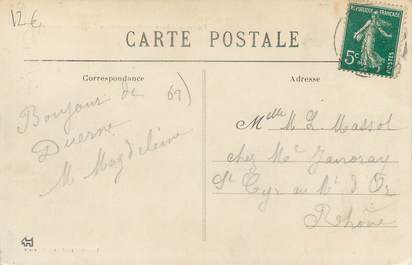 12 €
CARTE POSTALE
REPUBLIQUE FRANÇAISE
5c
POSTES
Correspondance
Adresse
Bonjour de
69)
Duerne
M Magdeleine
Melle M L Massol
chez Mr
St Cyr au Mt d'Or
Rhône